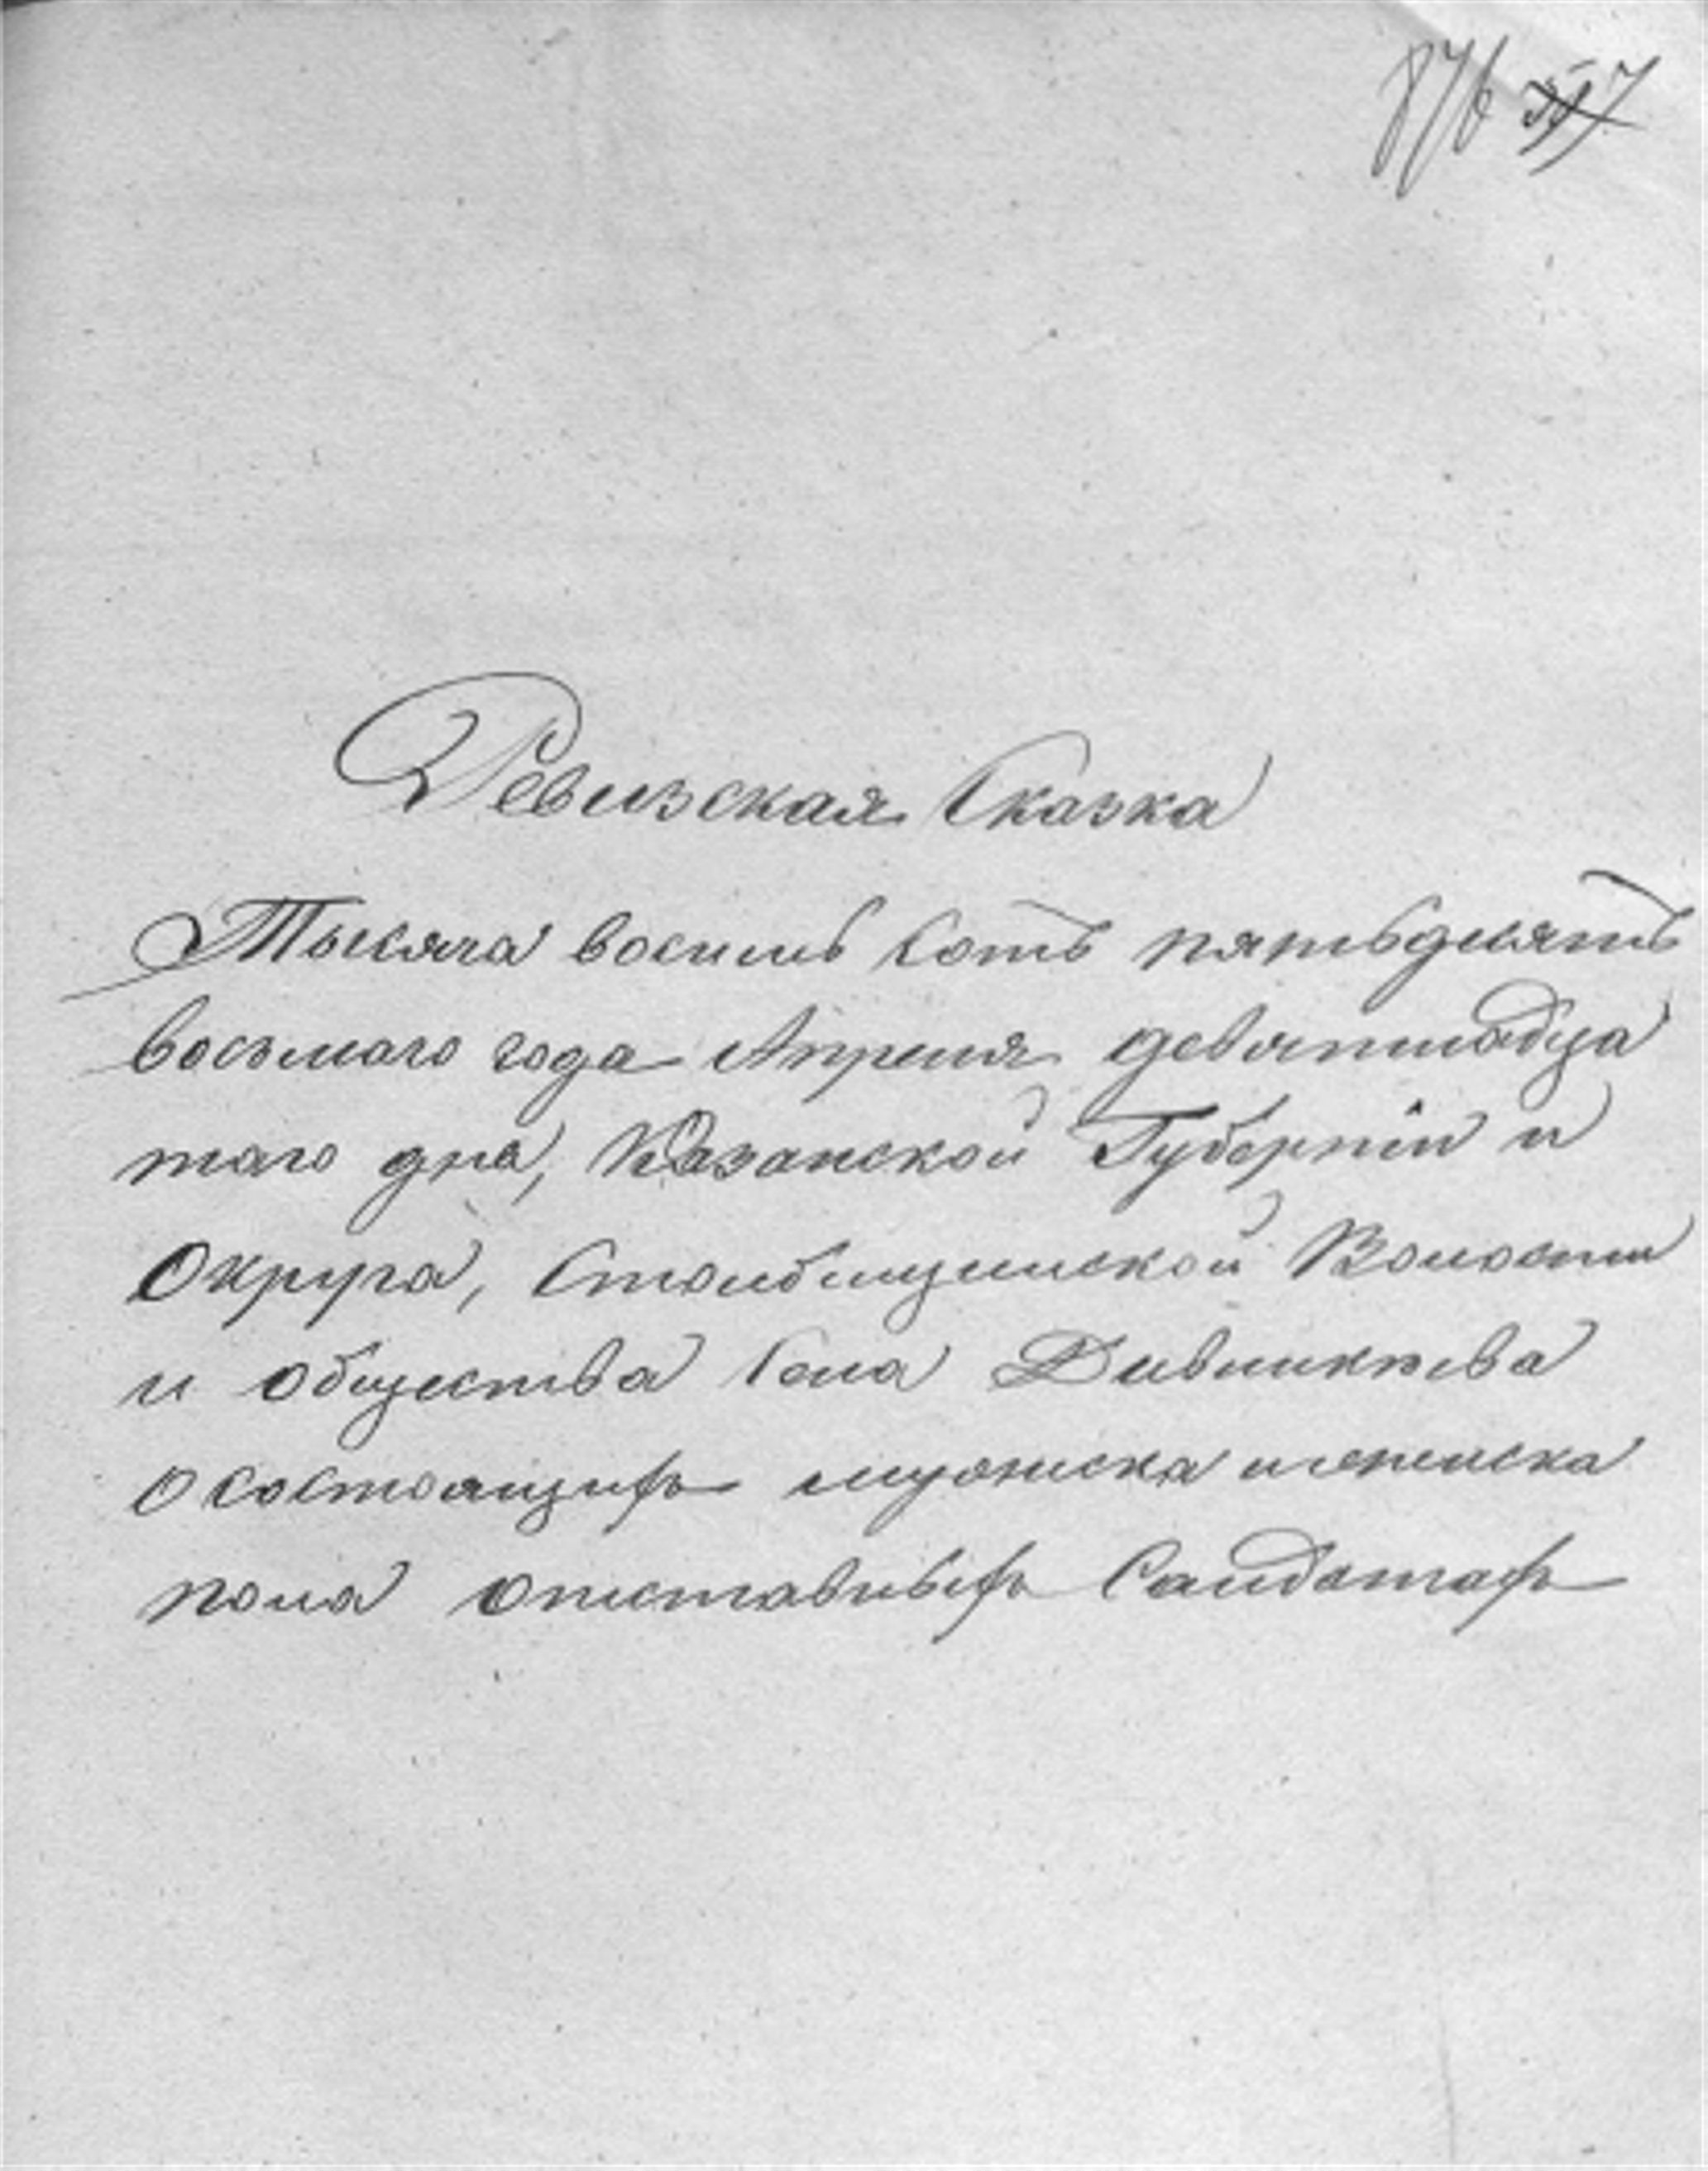 876
Ревизская Сказка
Тысяча восемь сотъ пятьдесятъ
восьмаго года Апреля девятнадца
таго дня, Казанской Губернiи и
Округа, Столбищинской Волости
и общества Села
о состоящихъ мужеска и женска
пола отставныхъ Солдатахъ